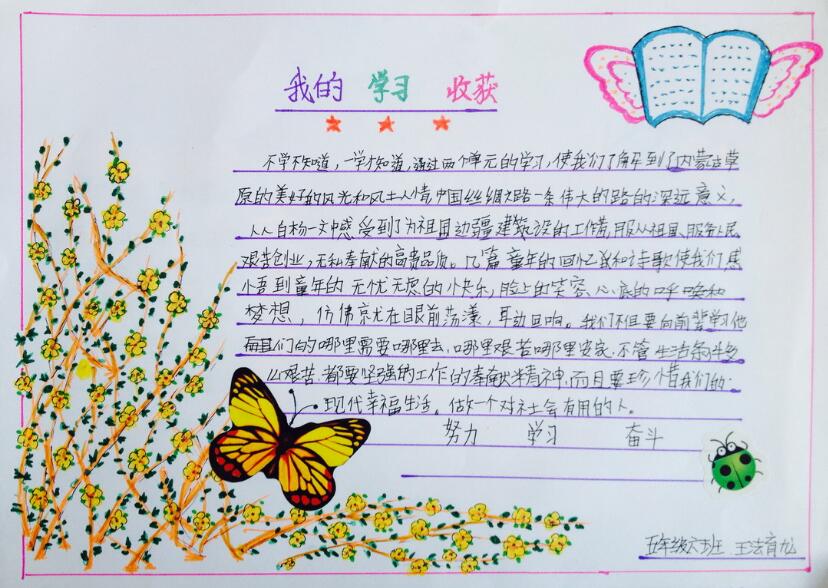 我的 学习 收获
不学不知道,一学才知道,通过两个单元的学习,使我们了解到了内蒙古草
原的美好的风光和风土人情,中国丝绸之路一条伟大的路的深远意义,
从白杨一文中感受到了为祖国边疆建筑设的工作者服从祖国、服务人民
艰苦创业,无私奉献的高贵品质。几篇童年的回忆录和诗歌使我们感
悟到童年的无忧无虑的快乐,脸上的笑容、心底的呼唤和
梦想,仿佛就在眼前荡漾,耳边回响。我们不但要向前辈学习他
们的哪里需要哪里去,哪里艰苦哪里安家,不管生活条件多
么艰苦都要坚强的工作的奉献精神,而且要珍惜我们的
现代幸福生活。做一个对社会有用的人。
努力 学习 奋斗
五年级六班 王法育